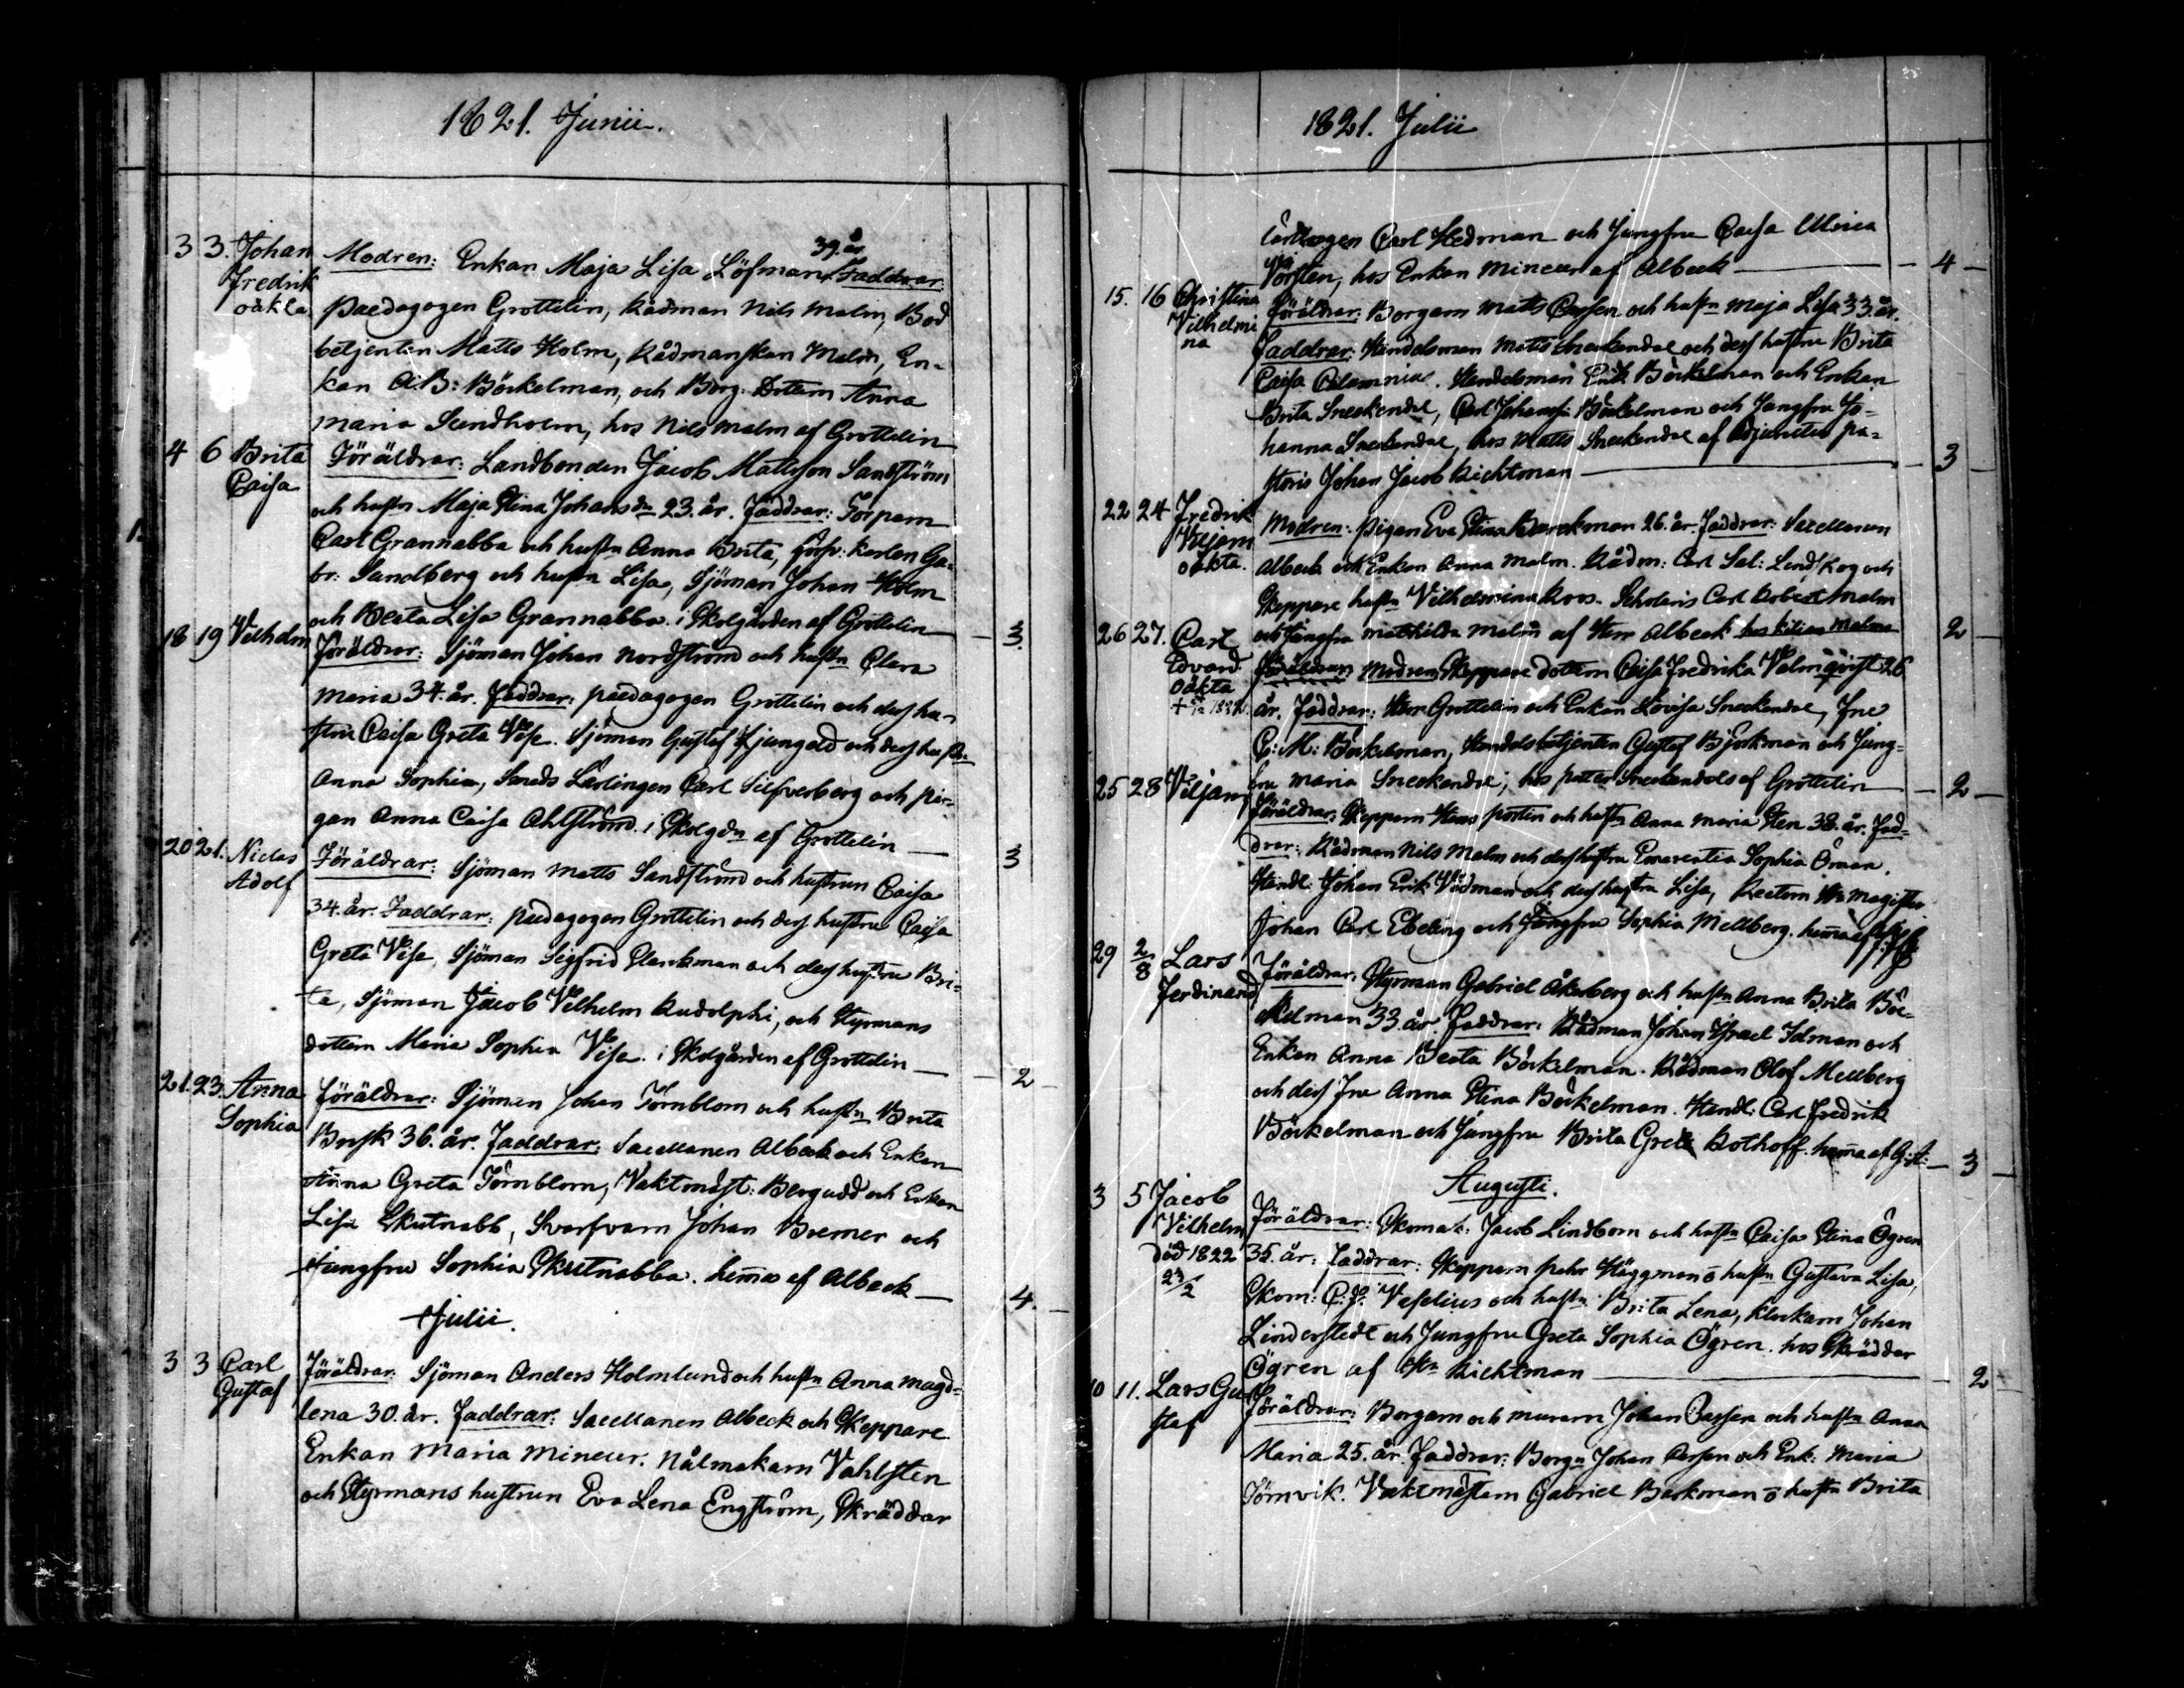 1821. Junii.
3 3. Johan Fredrik oäkta
Modren: Enkan Maja Lisa Löfman 39. år Faddrar
Paedagogen Grottelin, Rådman Nils Malm, Bod
betjenten Matts Holm, Rådmanskan Malm, En-
kan A:B: Böckelman, och Borg. Dottern Anna
Maria Sundholm, hos Nils Malm af Grottelin
4 6 Brita Caisa
Föräldrar: Landbonden Jacob Mattsson Sandström
och hustr Maja Stina Johansdr 23. år. Faddrar: Torparn
Carl Grannabba och hustru Anna Brita, Karlen Ga-
br: Sandberg och hustru Lisa, Sjöman Johan Holm
och Beata Lisa Grannabba. i Skolgården af Grottelin 3.
18 19 Vilhelm
Föräldrar: Sjöman Johan Nordström och hustru Clara
Maria 34. år. Faddrar: paedagogen Grottelin och dess hu-
stru Caisa Greta Vise. Sjöman Gustaf Ljungold och dess hustru
Anna Sophia, Smeds Lärlingen Carl Silfverberg och pi-
gan Anna Caisa Ahlström. i Skolgdn af Grottelin 3
20 21. Niclas Adolf
Föräldrar: Sjöman Matts Sandström och hustrun Caisa
34. år. Faddrar: paedagogen Grottelin och dess hustru Caisa
Greta Vise, Sjöman Sigfrid Clenkman och dess hustru Bri-
ta, Sjöman Jacob Vilhelm Rudolphi, och Styrmans
dottern Maria Sophia Vise. i Skolgården af Grottelin 2
21. 23. Anna Sophia
Föräldrar: Sjöman Johan Törnblom och hustru Brita
Busk 36. år. Faddrar: Sacellanen Albeck och Enkan
Anna Greta Törnblom, Vaktmäst: Bergudd och Enkan
Lisa Skutnabb, Svarfvarn Johan Bremer och
Jungfru Sophia Skutnabba. hema af Albeck 4.
Julii.
3 3 Carl Gustaf
Föräldrar: Sjöman Anders Holmlund och hustru Anna Magd-
lena 30. år. Faddrar: Sacellanen Albeck och Skeppare
Enkan Maria Mineur. Nålmakarn Vahlsten
och Styrmans hustrun Eva Lena Engström, Skräddar
1821. Julii
Carl Hedman och Jungfru Caisa Ulrica
hos Enkan Mineur af Albeck 4
15. 16 Christina Vilhelmina
Föräldrar: Borgarn Matts Carsen och hustru Maja Lisa 33. år.
Faddrar: Handelsman Matts Sneckendal och dess hustru Brita
Caisa Calamnius. Handelsman Erik Böckelman och Enkan
Brita Sneckendal, Carl Johan Böckelman och Jungfru Jo-
hanna Sneckendal, hos Matts Sneckendal af Adjunctus pa-
storis Johan Jacob Richtman 3
22 24 Fredrik Viljam oäkta.
Modren: Pigan Eva Stina Barckman 26. år. Faddrar: Sacellanen
Albeck och Enkan Anna Malm. Rådm: Carl Sal: Lindskog och
Skeppare hustru Vilhelmina Roos. Scholaris Carl Robert Malm
och Jungfru Mathilda Malm af Herr Albeck hos Kilian Malms 2
26 27. Carl Edvard Oäkta
Modren Skeppare dottern Caisa Fredrika Valmqvist 26
år. Faddrar: Herr Grottelin och Enkan Lovisa Sneckendal, Fru
C: M: Böckelman, Handelsbetjenten Gustaf Björkman och Jung-
fru Maria Sneckendal; hos Petter Sneckendals af Grottelin 2
25 28 Viljam
Föräldrar: Skeppern Hans Portin och hustru Anna Maria Sten 38. år. Fad-
drar: Rådman Nils Malm och dess hustru Emerentia Sophia Öman.
Handl. Johan Erik Vidman och dess hustru Lisa, Rectorn Hr Magister
Johan Carl Ebeling och Jungfru Sophia Mellberg. hema af
29 2/8 Lars Ferdinand
Föräldrar: Styrman Gabriel Åkerberg och hustru Anna Brita Böc-
kelman 33 år. Faddrar: Rådman Johan Israel Idman och
Enkan Anna Beata Böckelman. Rådman Olof Mellberg
och dess Fru Anna Stina Böckelman. Handl: Carl Fredrik
Böckelman och Jungfru Brita Greta Rothoff. hema af 3
Augusti.
3 5 Jacob Vilhelm död 1822 23/2
Föräldrar: Skomak: Jacob Lindbom och hustru Caisa Stina Ögren
35. år. Faddrar: Skeppern Pehr Häggman o hustru Gustava Lisa
Skom: C: J: Veselius och hustru Brita Lena, Klockarn Johan
Linderstedt och Jungfru Greta Sophia Ögren. hos Skräddar
Ögren af Richtman 2
10 11. Lars Gustaf
Föräldrar: Borgarn och murarn Johan Carsen och hustru Anna
Maria 25. år. Faddrar: Borgn Johan Carsen och Enk: Maria
Törnvik. Vaktmästarn Gabriel Backman o hustru Brita